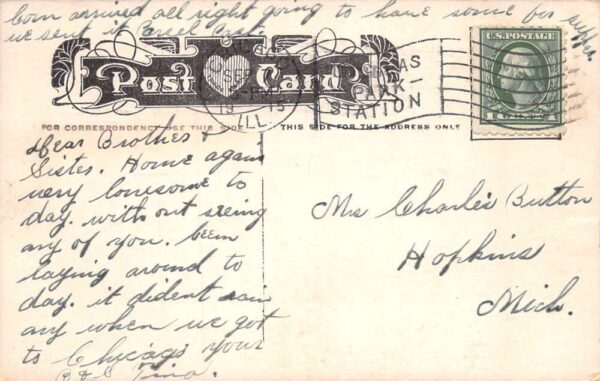 Corn arrived all right going to have some for supper
we sent it Parcel
Post Card
CHICAGO
SEP
1915
ILL
PARK
STATION
U.S. POSTAGE
FOR CORRESPONDENCE USE THIS SIDE
THIS SIDE FOR THE ADDRESS ONLY
Dear Brother &
Sister. Home again
very lonesome to
day. without seeing
any of you. been
laying around to
day. it dident rain
any when we got
to Chicago your
B & S Tina.
Mrs Charlie Button
Hopkins
Mich.